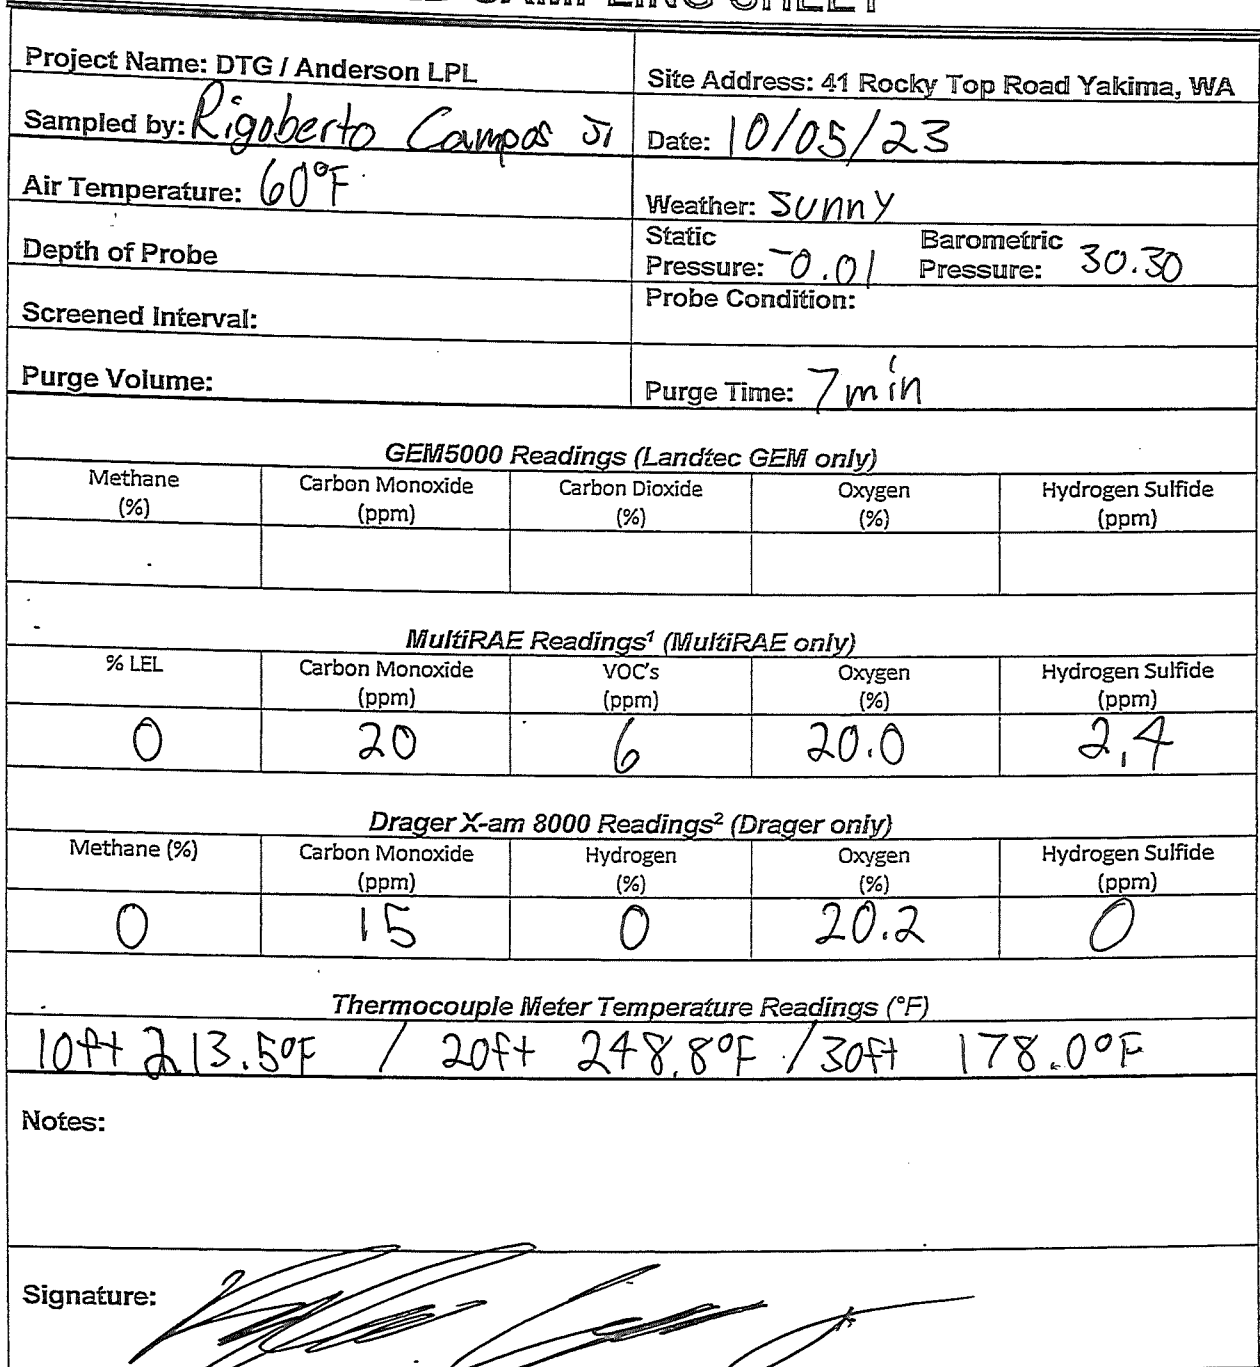 SAMPLING SHEET
Project Name: DTG / Anderson LPL
Site Address: 41 Rocky Top Road Yakima, WA
Sampled by: Rigoberto Campos Jr
Date: 10/05/23
Air Temperature: 60°F
Weather: Sunny
Depth of Probe
Static Pressure: -0.01
Barometric Pressure: 30.30
Screened Interval:
Probe Condition:
Purge Volume:
Purge Time: 7 min
GEM5000 Readings (Landtec GEM only)
Methane (%)
Carbon Monoxide (ppm)
Carbon Dioxide (%)
Oxygen (%)
Hydrogen Sulfide (ppm)
MultiRAE Readings¹ (MultiRAE only)
% LEL
Carbon Monoxide (ppm)
VOC's (ppm)
Oxygen (%)
Hydrogen Sulfide (ppm)
0 20 6 20.0 2.4
Drager X-am 8000 Readings² (Drager only)
Methane (%)
Carbon Monoxide (ppm)
Hydrogen (%)
Oxygen (%)
Hydrogen Sulfide (ppm)
0 15 0 20.2 0
Thermocouple Meter Temperature Readings (°F)
10ft 213.5°F / 20ft 248.8°F / 30ft 178.0°F
Notes:
Signature: